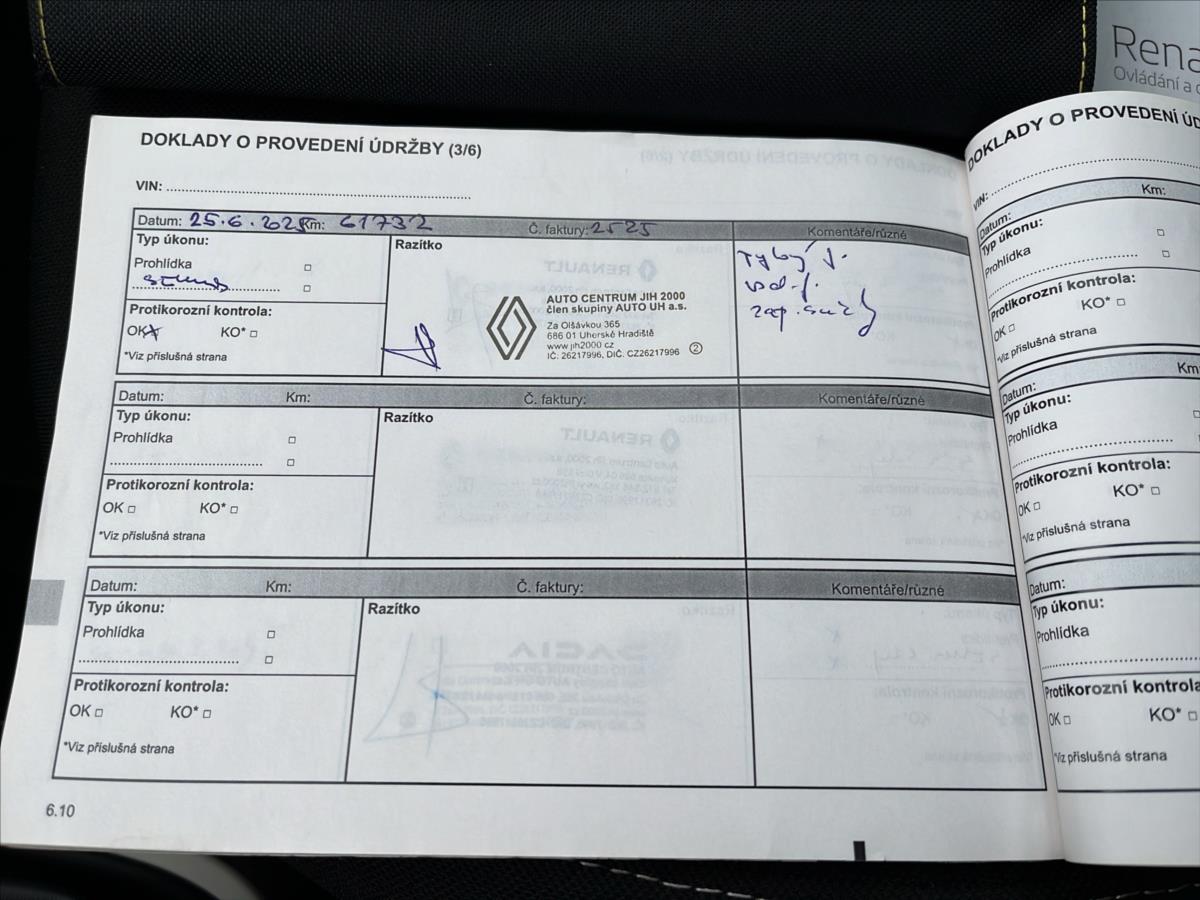 Rena
Ovládání a
DOKLADY O PROVEDENÍ ÚDRŽBY (3/6)
VIN:
Datum: 25.6.2025 Km: 61732 Č. faktury: 2525 Komentáře/různé
Typ úkonu:
Prohlídka
Protikorozní kontrola:
OK KO*
*Viz příslušná strana
Razítko
AUTO CENTRUM JIH 2000
člen skupiny AUTO UH a.s.
Za Olšávkou 365
686 01 Uherské Hradiště
www.jih2000.cz
IČ: 26217996, DIČ. CZ26217996 2
zap. svíčky
Datum: Km: Č. faktury: Komentáře/různé
Typ úkonu:
Prohlídka
Protikorozní kontrola:
OK KO*
*Viz příslušná strana
Razítko
Datum: Km: Č. faktury: Komentáře/různé
Typ úkonu:
Prohlídka
Protikorozní kontrola:
OK KO*
*Viz příslušná strana
Razítko
6.10
DOKLADY O PROVEDENÍ ÚD
VIN:
Datum: Km:
Typ úkonu:
Prohlídka
Protikorozní kontrola:
OK KO*
*Viz příslušná strana
Datum: Km
Typ úkonu:
Prohlídka
Protikorozní kontrola:
OK KO*
*Viz příslušná strana
Datum:
Typ úkonu:
Prohlídka
Protikorozní kontrola
OK KO*
*Viz příslušná strana